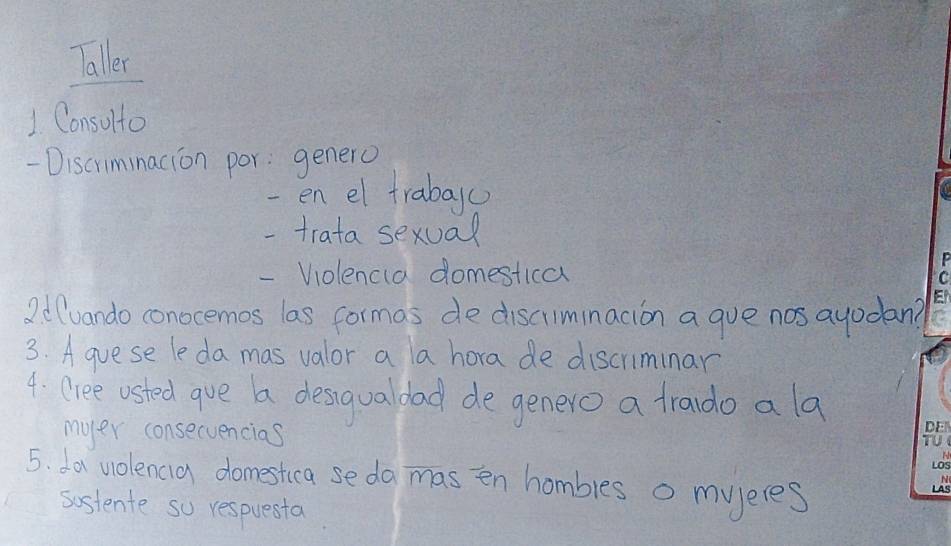 Taller
1. Consulto
- Discriminación por: genero
- en el trabajo
- trata sexual
- Violencia domestica
2. ¿Cuando conocemos las formas de discriminación a que nos ayudan?
3. A que se le da mas valor a la hora de discriminar
4. Cree usted que la desigualdad de genero a traido a la
mujer consecuencias
5. La violencia domestica se da mas en hombres o mujeres
Sustente su respuesta.
P
C
EN
DE
TU
NO
LOS
NO
LAS